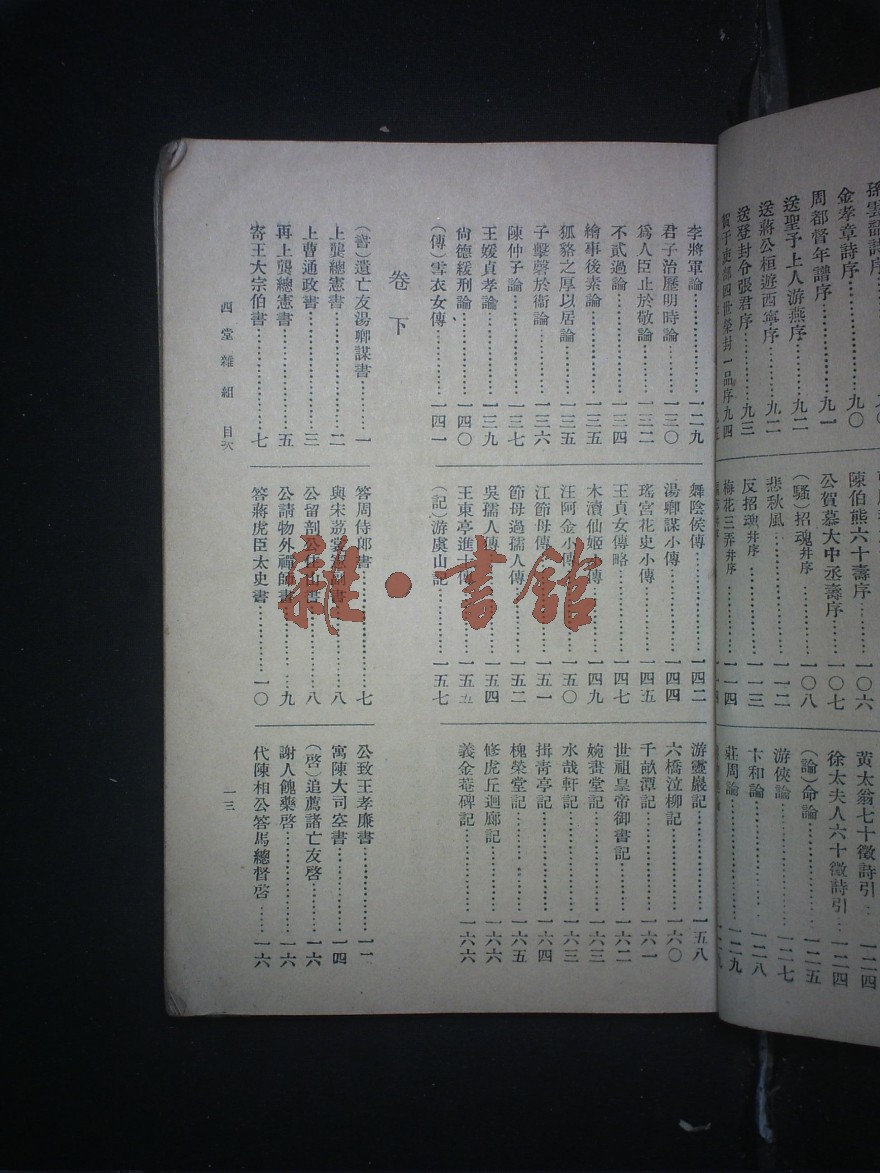 金孝章詩序……九〇
周都督年譜序……九一
送聖予上人游燕序……九二
送蔣公桓遊西寧序……九二
送登封令張君序……九三
賀于吏部四世榮封一品序九四
陳伯熊六十壽序……一〇六
公賀慕大中丞壽序……一〇七
(騷)招魂并序……一〇八
悲秋風……一一二
反招魂并序……一一三
梅花三弄并序……一一四
黃太翁七十徵詩引……一二四
徐太夫人六十徵詩引……一二四
(論)命論……一二五
游俠論……一二七
卞和論……一二八
莊周論……一二九
李將軍論……一二九
君子治厯明時論……一三〇
爲人臣止於敬論……一三二
不貳過論……一三四
繪事後素論……一三五
狐貉之厚以居論……一三五
子擊磬於衛論……一三六
陳仲子論……一三七
王媛貞孝論……一三九
尙德緩刑論……一四〇
(傳)雪衣女傳……一四一
舞陰侯傳……一四二
湯卿謀小傳……一四四
瑤宮花史小傳……一四五
王貞女傳略……一四七
木瀆仙姬傳……一四九
汪阿金小傳……一五〇
江節母傳……一五一
節母過孺人傳……一五二
吳孺人傳……一五四
王東亭進士傳……一五五
(記)游虞山記……一五七
游靈巖記……一五八
六橋泣柳記……一六〇
千畝潭記……一六一
世祖皇帝御書記……一六二
婉畫堂記……一六三
水哉軒記……一六三
揖靑亭記……一六四
槐榮堂記……一六五
修虎丘迴廊記……一六六
義金菴碑記……一六六
卷下
(書)遺亡友湯卿謀書……一
上龔總憲書……二
上曹通政書……三
再上龔總憲書……五
寄王大宗伯書……七
答周侍郎書……七
與宋荔裳書……八
公留剖公住山書……八
公請物外禪師書……九
答蔣虎臣太史書……一〇
公致王孝廉書……一一
寓陳大司空書……一四
(啓)追薦諸亡友啓……一六
謝人餽藥啓……一六
代陳相公答馬總督啓……一六
西堂雜組 目次
一三
雜·書館